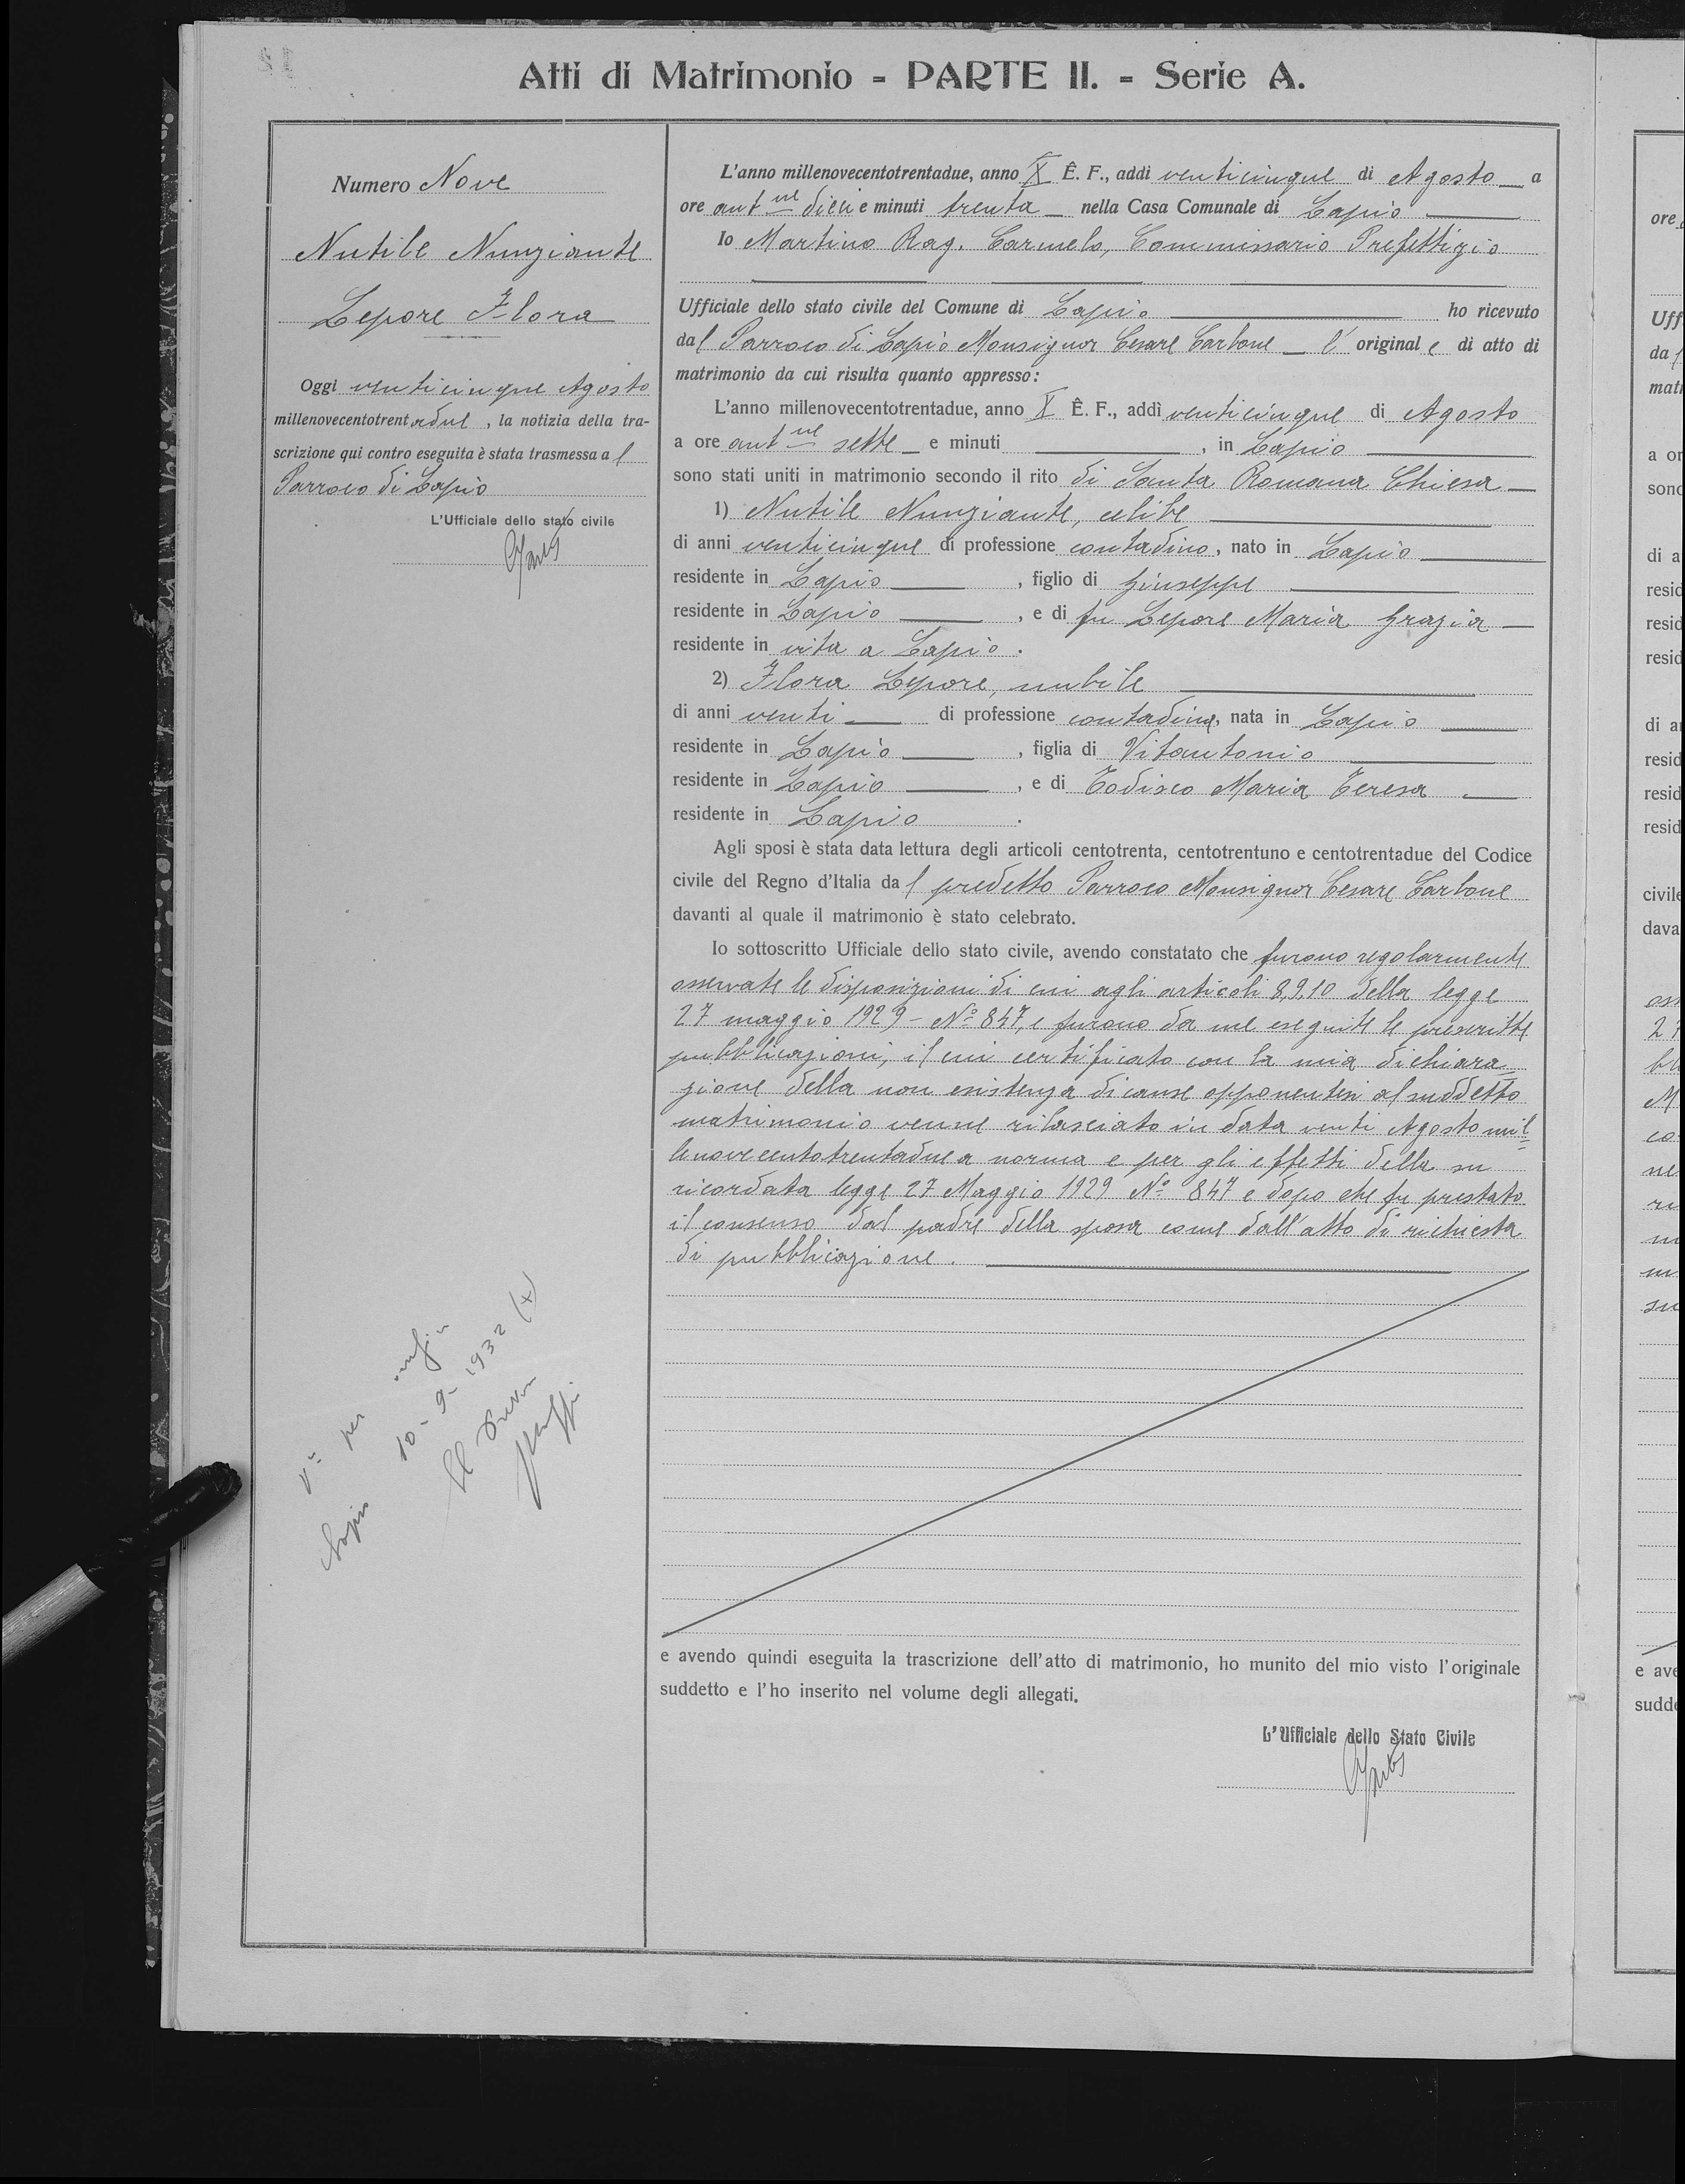 Atti di Matrimonio - PARTE II. - Serie A.
Numero Nove
Nutile Nunziante
Lepore Flora
Oggi venticinque Agosto
millenovecentotrentadue, la notizia della tra-
scrizione qui contro eseguita è stata trasmessa al
Parroco di Lapio
L'Ufficiale dello stato civile
L'anno millenovecentotrentadue, anno X E. F., addì venticinque di Agosto a
ore ant.ne dieci e minuti trenta nella Casa Comunale di Lapio
Io Martino Rag. Carmelo, Commissario Prefettizio
Ufficiale dello stato civile del Comune di Lapio ho ricevuto
dal Parroco di Lapio Monsignor Cesare Carbone l'originale di atto di
matrimonio da cui risulta quanto appresso:
L'anno millenovecentotrentadue, anno X E. F., addì venticinque di Agosto
a ore ant.ne sette e minuti , in Lapio
sono stati uniti in matrimonio secondo il rito di Santa Romana Chiesa
1) Nutile Nunziante, celibe
di anni venticinque di professione contadino, nato in Lapio
residente in Lapio , figlio di Giuseppe
residente in Lapio , e di fu Lepore Maria Grazia
residente in vita a Lapio.
2) Flora Lepore, nubile
di anni venti di professione contadina, nata in Lapio
residente in Lapio , figlia di Vitantonio
residente in Lapio , e di Todisco Maria Teresa
residente in Lapio .
Agli sposi è stata data lettura degli articoli centotrenta, centotrentuno e centotrentadue del Codice
civile del Regno d'Italia dal predetto Parroco Monsignor Cesare Carbone
davanti al quale il matrimonio è stato celebrato.
Io sottoscritto Ufficiale dello stato civile, avendo constatato che furono regolarmente
osservate le disposizioni di cui agli articoli 8,9,10 della legge
27 maggio 1929 - No 847, e furono da me eseguite le prescritte
pubblicazioni, il cui certificato con la mia dichiara=
zione della non esistenza di cause opponentesi al suddetto
matrimonio venne rilasciato in data venti Agosto mil=
lenovecentotrentadue a norma e per gli effetti della su
ricordata legge 27 Maggio 1929 No 847 e dopo che fu prestato
il consenso dal padre della sposa come dall'atto di richiesta
di pubblicazione.
Vo per
Lapio 10-9-1932 (X)
Il
e avendo quindi eseguita la trascrizione dell'atto di matrimonio, ho munito del mio visto l'originale
suddetto e l'ho inserito nel volume degli allegati.
L'Ufficiale dello Stato Civile